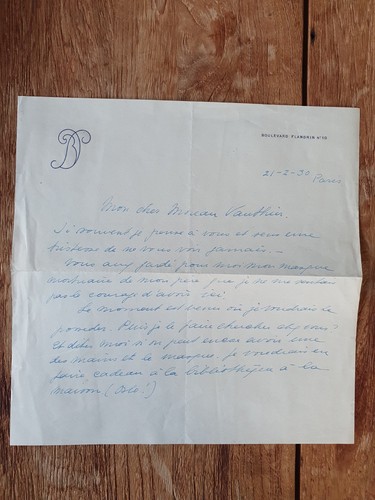 BOULEVARD FLANDRIN Nº
21-2-30 Paris
Mon cher Moreau Vauthier.
Si souvent je pense à vous et sens une
tristesse de ne vous voir jamais —
Vous avez gardé pour moi mon masque
mortuaire de mon père que je ne me sentais
pas le courage d'avoir ici
Le moment est venu où je voudrais le
posséder. Puis-je le faire chercher chez vous?
Et dites moi si on peut encore avoir une
des mains et le masque. je voudrais en
faire cadeau à la bibliothèque à la
maison (Oslo!)